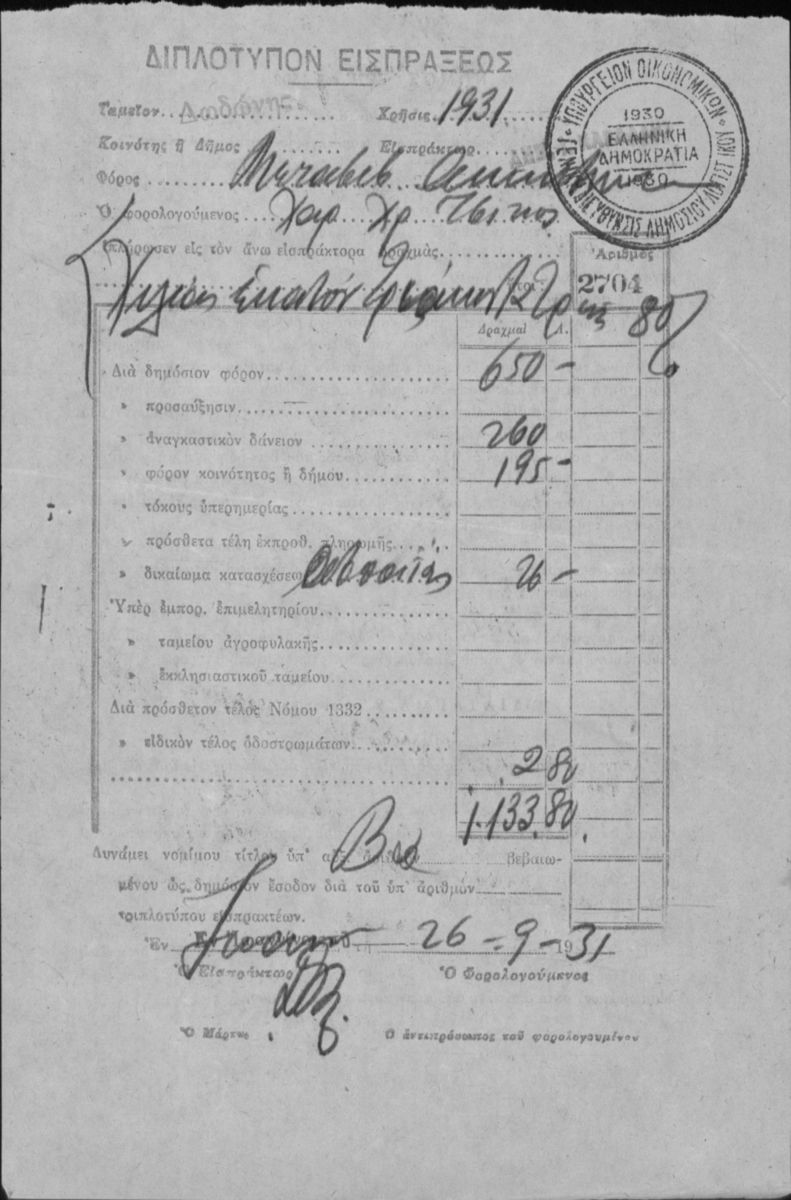 ΔΙΠΛΟΤΥΠΟΝ ΕΙΣΠΡΑΞΕΩΣ
Ταμεῖον Δωδώνης Χρῆσις 1931
Κοινότης ἢ Δῆμος Εἰσπράκτωρ
Φόρος Μεταβιβ.
Ὁ φορολογούμενος Χαρ. Χρ.
ἐπλήρωσεν εἰς τὸν ἄνω εἰσπράκτορα δραχμὰς
Χιλίας Ἑκατόν Τριάκοντα Τρεῖς 80
ΥΠΟΥΡΓΕΙΟΝ ΟΙΚΟΝΟΜΙΚΩΝ
1930
ΕΛΛΗΝΙΚΗ
ΔΗΜΟΚΡΑΤΙΑ
1930
Ἀριθμὸς
2704
Δραχμαὶ Λ.
Διὰ δημόσιον φόρον 650 –
» προσαύξησιν
» ἀναγκαστικὸν δάνειον 260
» φόρον κοινότητος ἢ δήμου 195 –
» τόκους ὑπερημερίας
» πρόσθετα τέλη ἐκπροθ. πληρωμῆς
» δικαίωμα κατασχέσεω 26 –
Ὑπὲρ ἐμπορ. ἐπιμελητηρίου
» ταμείου ἀγροφυλακῆς
» ἐκκλησιαστικοῦ ταμείου
Διὰ πρόσθετον τέλος Νόμου 1332
» εἰδικὸν τέλος ὁδοστρωμάτων
2 80
1.133.80
Δυνάμει νομίμου τίτλου ὑπ' αὔξ. ἀριθμὸν βεβαιω-
μένου ὡς δημόσιον ἔσοδον διὰ τοῦ ὑπ' ἀριθμὸν
τριπλοτύπου εἰσπρακτέων.
Ἐν τῇ 26 – 9 – 1931
Ὁ Εἰσπράκτωρ Ὁ Φορολογούμενος
Ὁ Μάρτυς Ὁ ἀντιπρόσωπος τοῦ φορολογουμένου